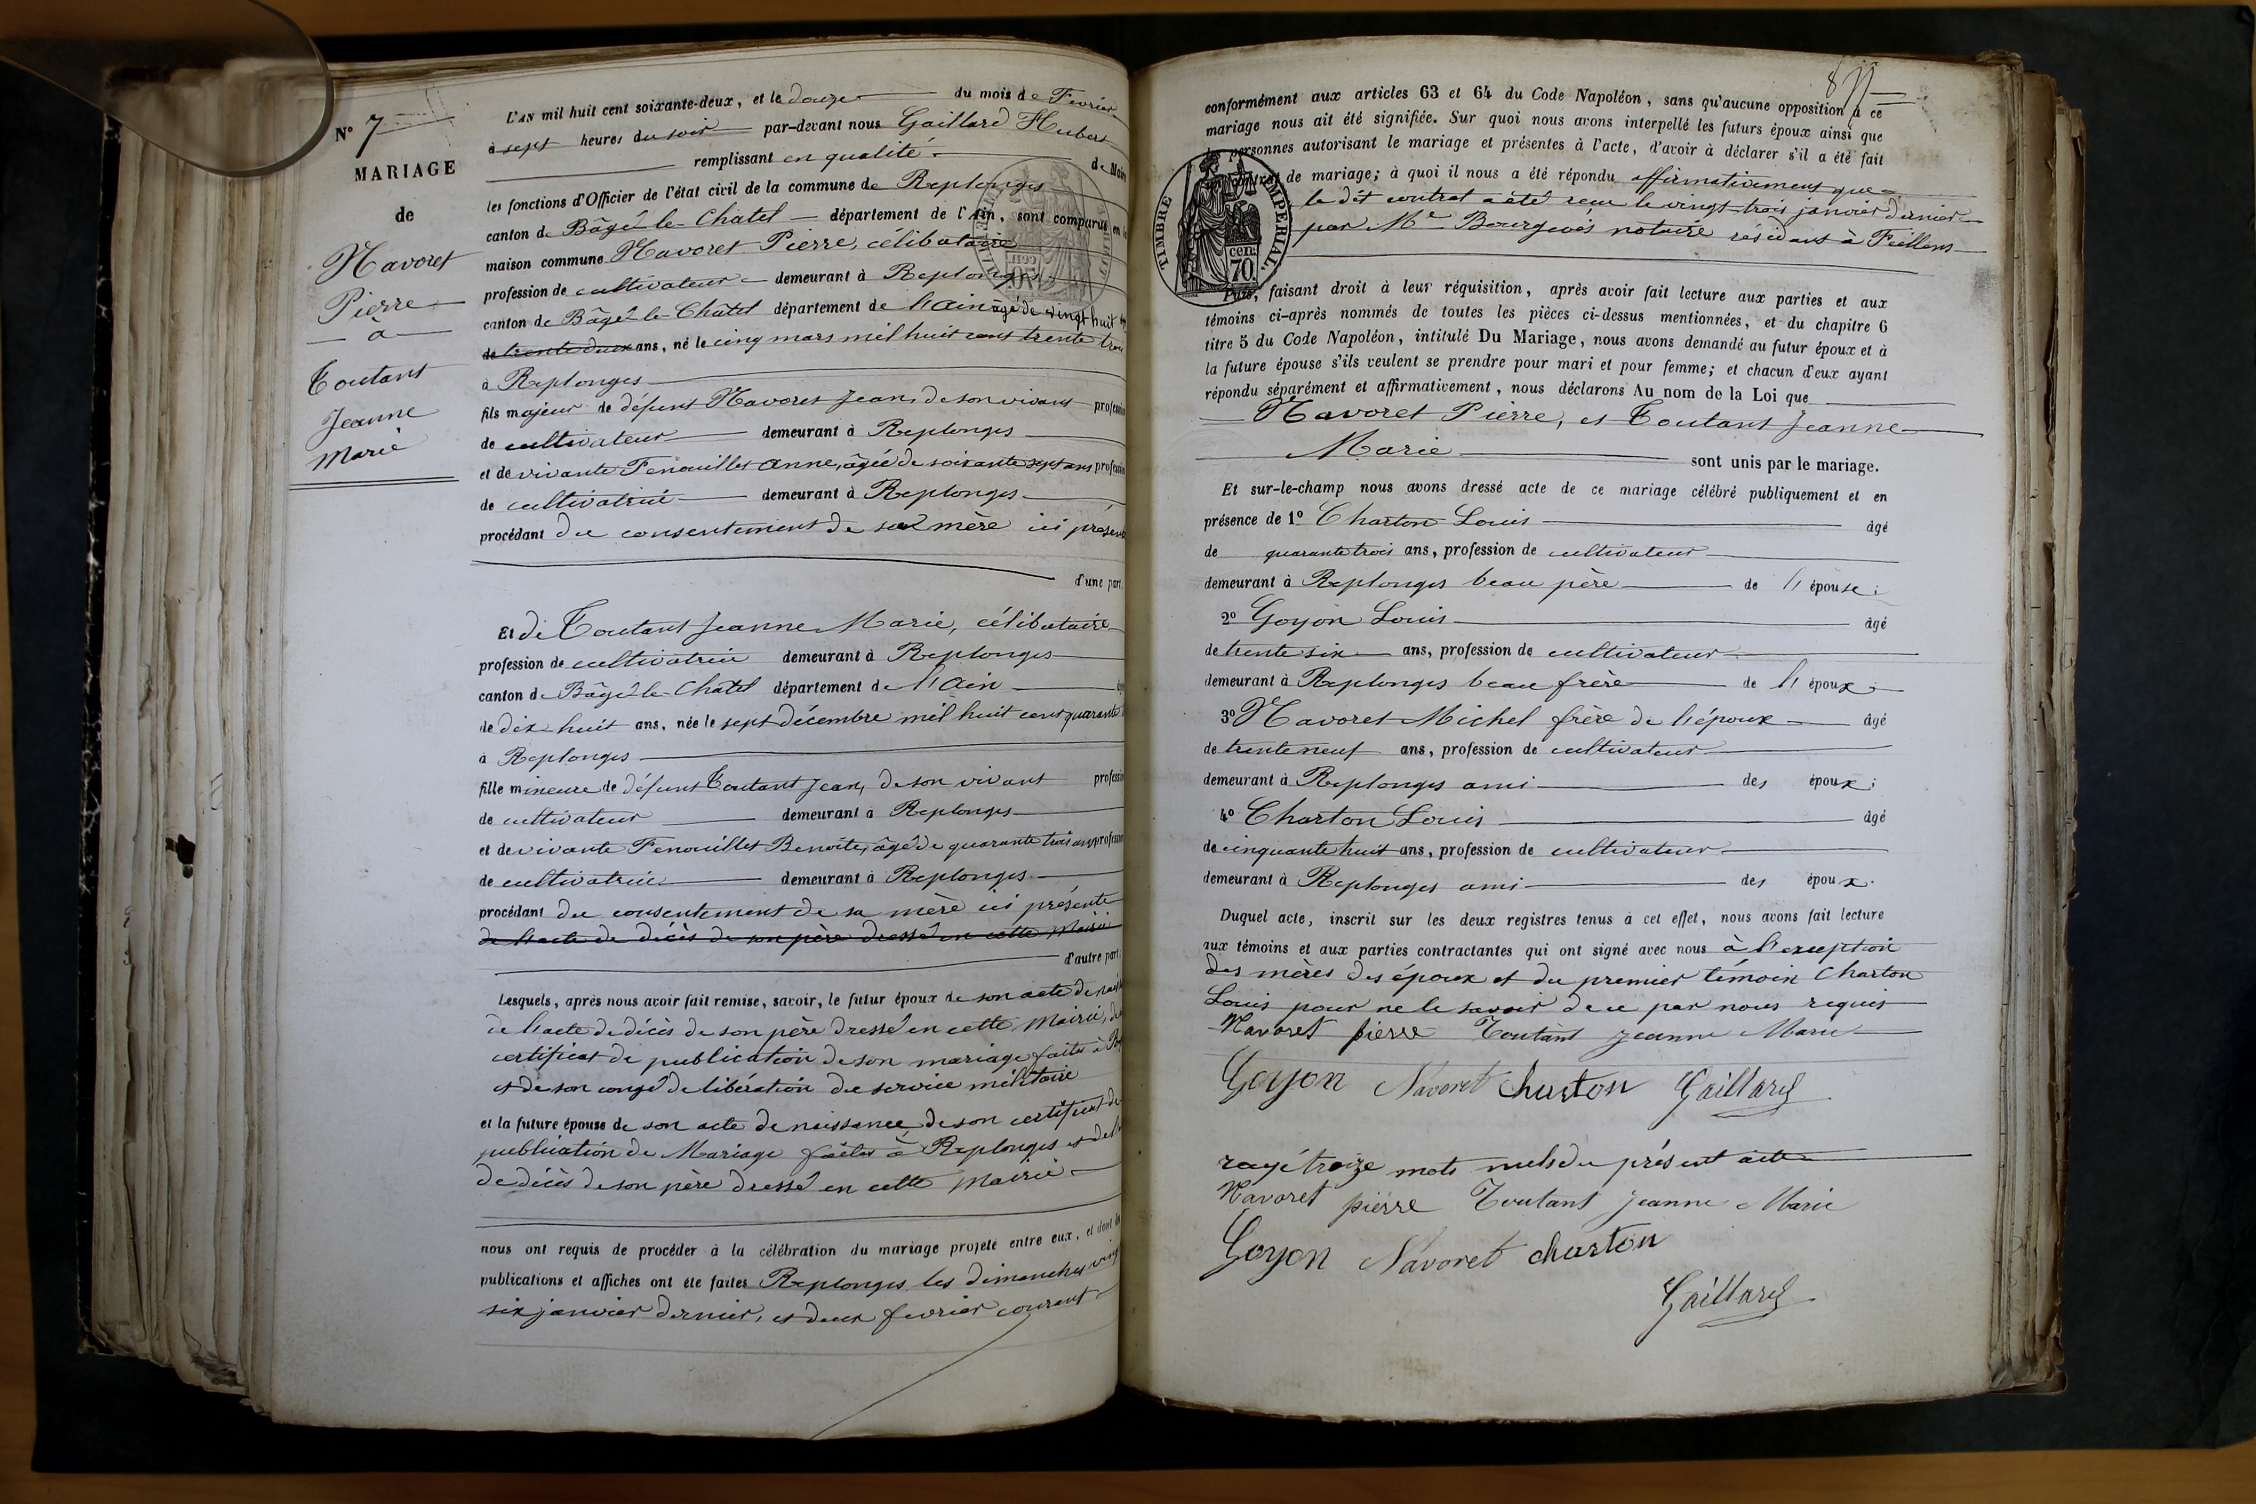 N° 7
MARIAGE
de
Navoret
Pierre
à
Toutant
Jeanne
Marie
L'AN mil huit cent soixante-deux, et le douze du mois de Fevrier
à sept heures du soir par-devant nous Gaillard Hubert
remplissant en qualité de Maire
les fonctions d'Officier de l'état civil de la commune de Replonges
canton de Bâgé-le-Chatel département de l'Ain, sont comparus en la
maison commune Navoret Pierre, célibataire
profession de cultivateur demeurant à Replonges
canton de Bâgé-le-Châtel département de l'Ain âgé de vingt huit
de trente deux ans, né le cinq mars mil huit cent trente trois
à Replonges
fils majeur de défunt Navoret Jean, de son vivant profession
de cultivateur demeurant à Replonges
et de vivante Fenouillet Anne, âgée de soixante sept ans profession
de cultivatrice demeurant à Replonges
procédant du consentement de sa mère ici présente
d'une part.
Et de Toutant Jeanne Marie, célibataire
profession de cultivatrice demeurant à Replonges
canton de Bâgé-le-Châtel département de l'Ain
de dix huit ans, née le sept décembre mil huit cent quarante
à Replonges
fille mineure de défunt Toutant Jean, de son vivant profession
de cultivateur demeurant à Replonges
et de vivante Fenouillet Benoite, âgé de quarante trois ans profession
de cultivatrice demeurant à Replonges
procédant du consentement de sa mère ici présente
de l'acte de décès de son père dressé en cette Mairie
d'autre part.
Lesquels, après nous avoir fait remise, savoir, le futur époux de son acte de
de l'acte de décès de son père dressé en cette Mairie, de
certificat de publication de son mariage faites à
et de son congé de libération du service militaire
et la future épouse de son acte de naissance, de son certificat de
publication de Mariage faites à Replonges et de
de décès de son père dressé en cette Mairie
nous ont requis de procéder à la célébration du mariage projeté entre eux, et dont les
publications et affiches ont été faites Replonges les dimanches vingt
six janvier dernier, et deux fevrier courant
conformément aux articles 63 et 64 du Code Napoléon, sans qu'aucune opposition à ce
mariage nous ait été signifiée. Sur quoi nous avons interpellé les futurs époux ainsi que
personnes autorisant le mariage et présentes à l'acte, d'avoir à déclarer s'il a été fait
de mariage; à quoi il nous a été répondu affirmativement que
le dit contrat a été reçu le vingt trois janvier dernier
par Me Bourgeois notaire résidant à Feillens
TIMBRE IMPÉRIAL
70 cen.
Puis, faisant droit à leur réquisition, après avoir fait lecture aux parties et aux
témoins ci-après nommés de toutes les pièces ci-dessus mentionnées, et du chapitre 6
titre 5 du Code Napoléon, intitulé Du Mariage, nous avons demandé au futur époux et à
la future épouse s'ils veulent se prendre pour mari et pour femme; et chacun d'eux ayant
répondu séparément et affirmativement, nous déclarons Au nom de la Loi que
Navoret Pierre, et Toutant Jeanne
Marie sont unis par le mariage.
Et sur-le-champ nous avons dressé acte de ce mariage célébré publiquement et en
présence de 1° Charton Louis âgé
de quarante trois ans, profession de cultivateur
demeurant à Replonges beau père de l'épouse;
2° Goyon Louis âgé
de trente six ans, profession de cultivateur
demeurant à Replonges beau frère de l'époux;
3° Navoret Michel frère de l'époux âgé
de trente neuf ans, profession de cultivateur
demeurant à Replonges ami des époux;
4° Charton Louis âgé
de cinquante huit ans, profession de cultivateur
demeurant à Replonges ami des époux.
Duquel acte, inscrit sur les deux registres tenus à cet effet, nous avons fait lecture
aux témoins et aux parties contractantes qui ont signé avec nous à l'exception
des mères des époux et du premier témoin Charton
Louis pour ne le savoir de ce par nous requis
Navoret pierre Toutant jeanne Marie
Goyon Navoret charton Gaillard
rayé treize mots nuls du présent acte
Navoret pierre Toutant jeanne Marie
Goyon Navoret charton
Gaillard